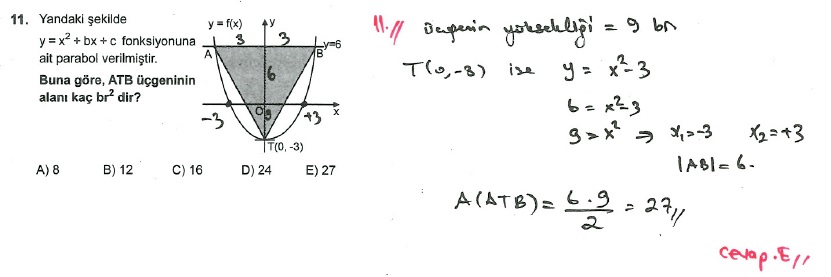 11. Yandaki şekilde
y = x² + bx + c fonksiyonuna
ait parabol verilmiştir.
Buna göre, ATB üçgeninin
alanı kaç br² dir?
y = f(x)
y
3 3
A
B
y=6
6
O
3
x
-3
+3
T(0, -3)
A) 8 B) 12 C) 16 D) 24 E) 27
11.// Üçgenin yüksekliği = 9 br
T(0,-3) ise y = x²-3
6 = x²-3
9 = x² ⇒ x₁=-3 x₂=+3
|AB|=6.
A(ATB) = 6.9 / 2 = 27//
cevap.E//